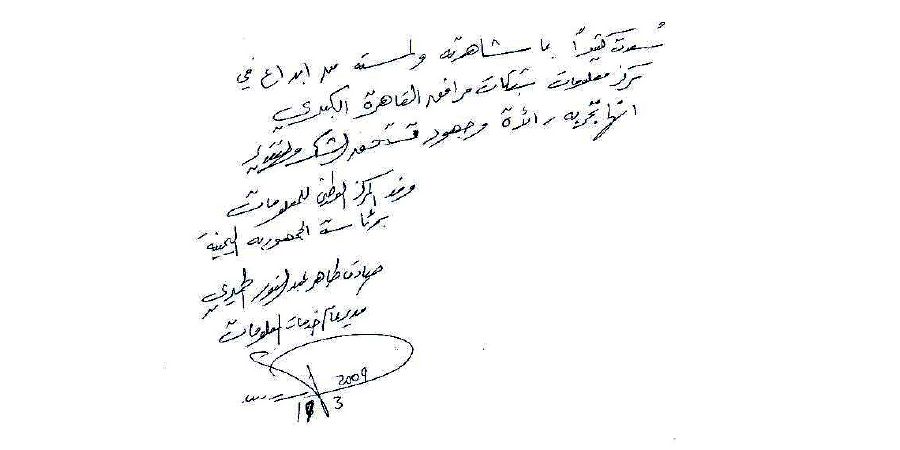 سُعدت كثيراً بما شاهدته ولمسته من ابداع في
مركز معلومات شبكات مرافق القاهرة الكبرى
انها تجربه رائدة وجهود تستحق الشكر والتقدير
وفد المركز الوطني للمعلومات
برئاسة الجمهوريه اليمنية
صادق طاهر الحميدي
مدير عام خدمات المعلومات
2009
3